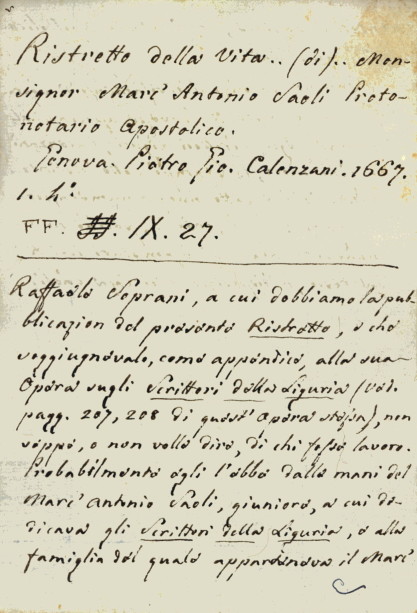 Ristretto della Vita.. (di).. Mon-
signor Marc' Antonio Saoli Proto-
notario Apostolico.
Genova. Pietro Gio. Calenzani. 1667.
1. 4.°
FF. IX. 27.
Raffaele Soprani, a cui dobbiamo la pub-
blicazion del presente Ristretto, e che
soggiugnevalo, come appendice, alla sua
Opera sugli Scrittori della Liguria (ved.
pagg. 207, 208 di quest' Opera stessa), non
seppe, o non volle dire, di chi fosse lavoro.
Probabilmente egli l'ebbe dalle mani del
Marc' Antonio Saoli, giuniore, a cui de-
dicava gli Scrittori della Liguria, e alla
famiglia del quale apparteneva il Marc'